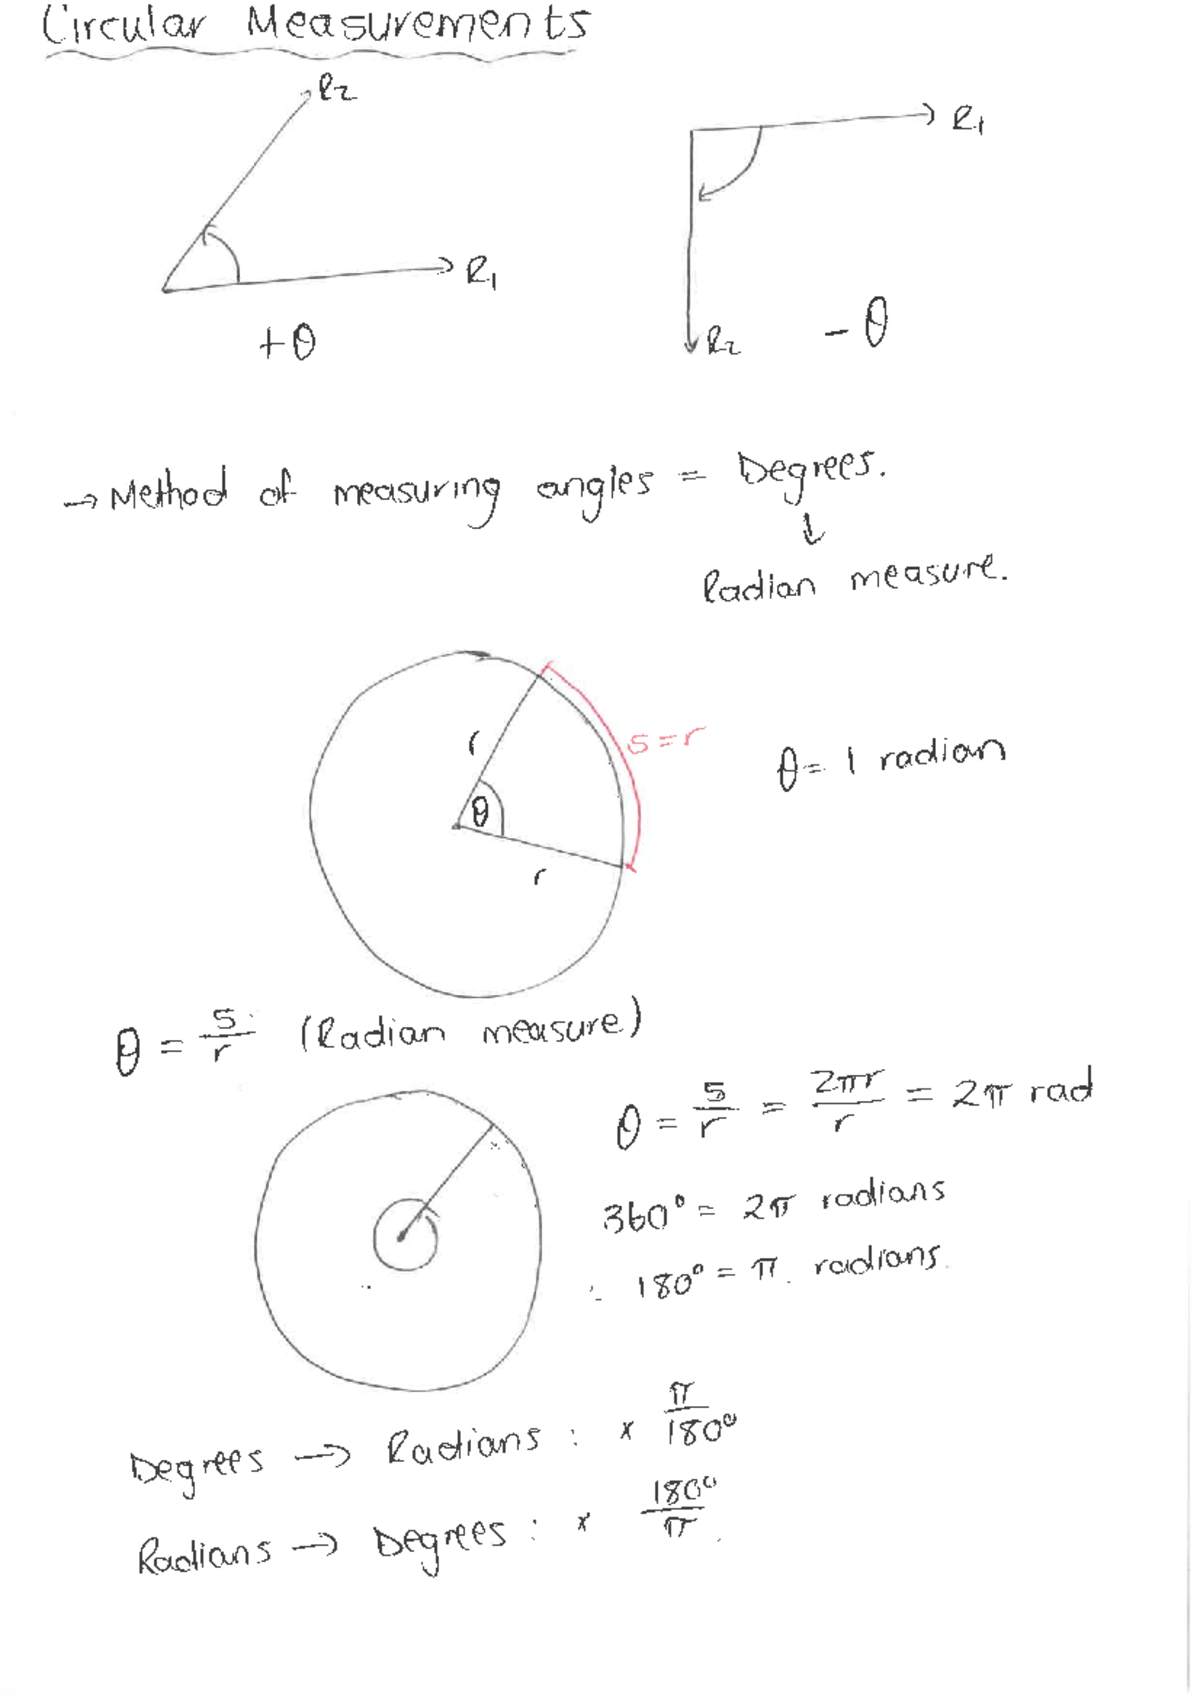 Circular Measurements
R2
R1
R1
+θ
R2
-θ
→ Method of measuring angles = Degrees.
↓
Radian measure.
r
s=r
θ
θ= 1 radian
r
θ = s/r (Radian measure)
θ = s/r = 2πr/r = 2π rad
360° = 2π radians
∴ 180° = π radians.
Degrees → Radians : × π/180°
Radians → Degrees : × 180°/π